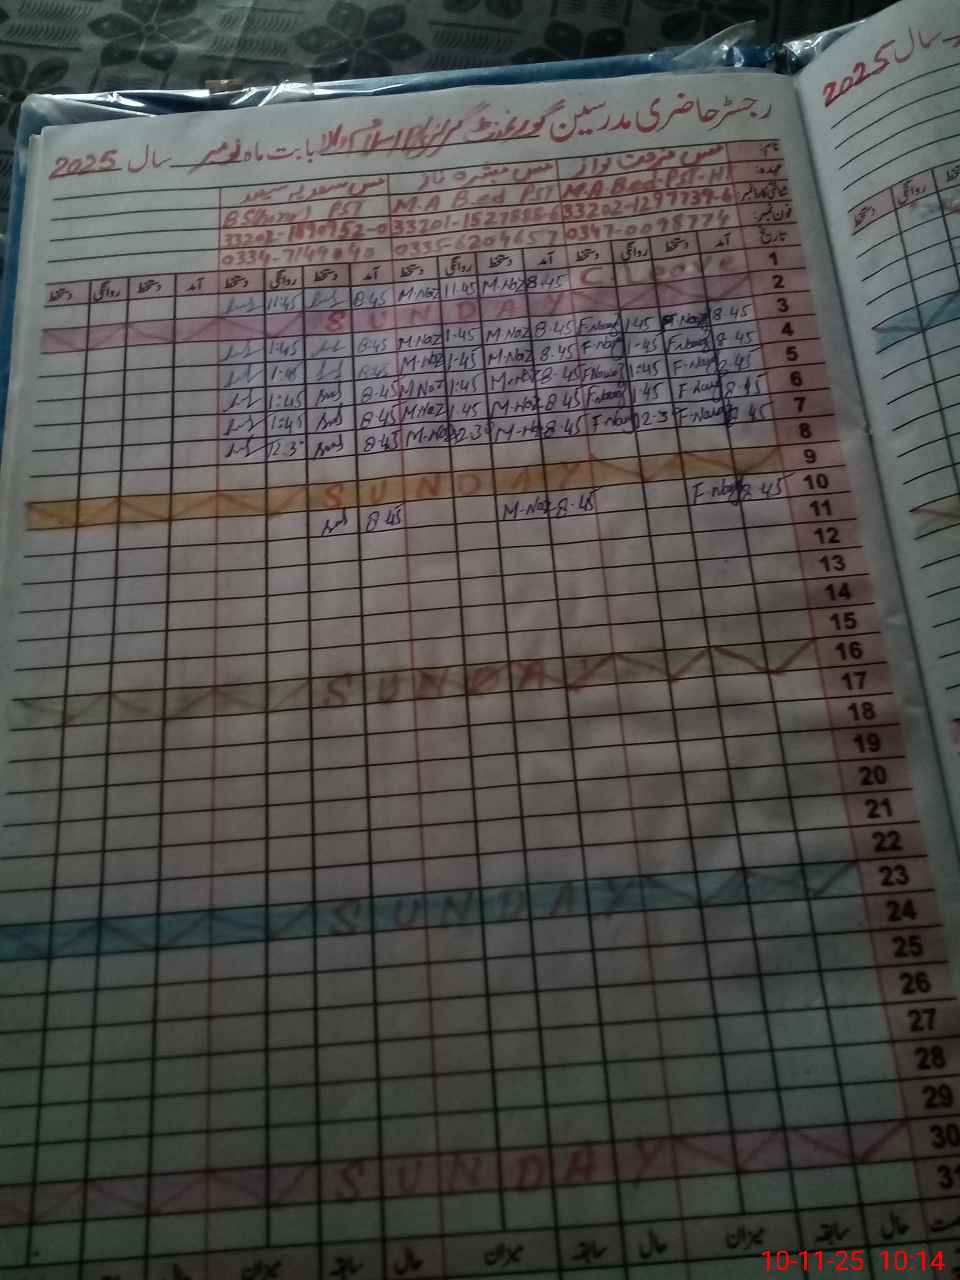 رجسٹر حاضری مدرسین گورنمنٹ گرلز پرائمری اسلام والا بابت ماہ نومبر سال 2025
سال 2025
نام مس فرحت نواز مس مبشرہ ناز مس سعدیہ سعید
عہدہ M.A B.ed PST-H M.A B.ed PST BS(hons) PST
شناختی کارڈ نمبر 33202-1297739-6 33201-1527888-6
فون نمبر 0347-0098774 0335-6204657 0334-7149040
تاریخ آمد دستخط روانگی دستخط آمد دستخط روانگی دستخط آمد دستخط روانگی دستخط آمد دستخط روانگی دستخط
1 C.Leave 8.45 M.Naz 11.45 M.Naz 8.45 11.45
2 SUNDAY
3 8.45 F.Nawaz 1.45 F.Nawaz 8.45 M.Naz 1.45 M.Naz 8.45 1.45
4 8.45 F.Nawaz 1.45 F.Nawaz 8.45 M.Naz 1.45 M.Naz 8.45 1.45
5 8.45 F.Nawaz 1.45 F.Nawaz 8.45 M.Naz 1.45 M.Naz 8.45 1.45
6 8.45 F.Nawaz 1.45 F.Nawaz 8.45 M.Naz 1.45 M.Naz 8.45 1.45
7 8.45 F.Nawaz 12.3 F.Nawaz 8.45 M.Naz 12.3 M.Naz 8.45 12.3
8
9 SUNDAY
10 8.45 F.Nawaz 8.45 M.Naz 8.45
11
12
13
14
15
16 SUNDAY
17
18
19
20
21
22
23 SUNDAY
24
25
26
27
28
29
30 SUNDAY
31
حال سابقہ میزان حال سابقہ میزان حال سابقہ میزان
10-11-25 10:14